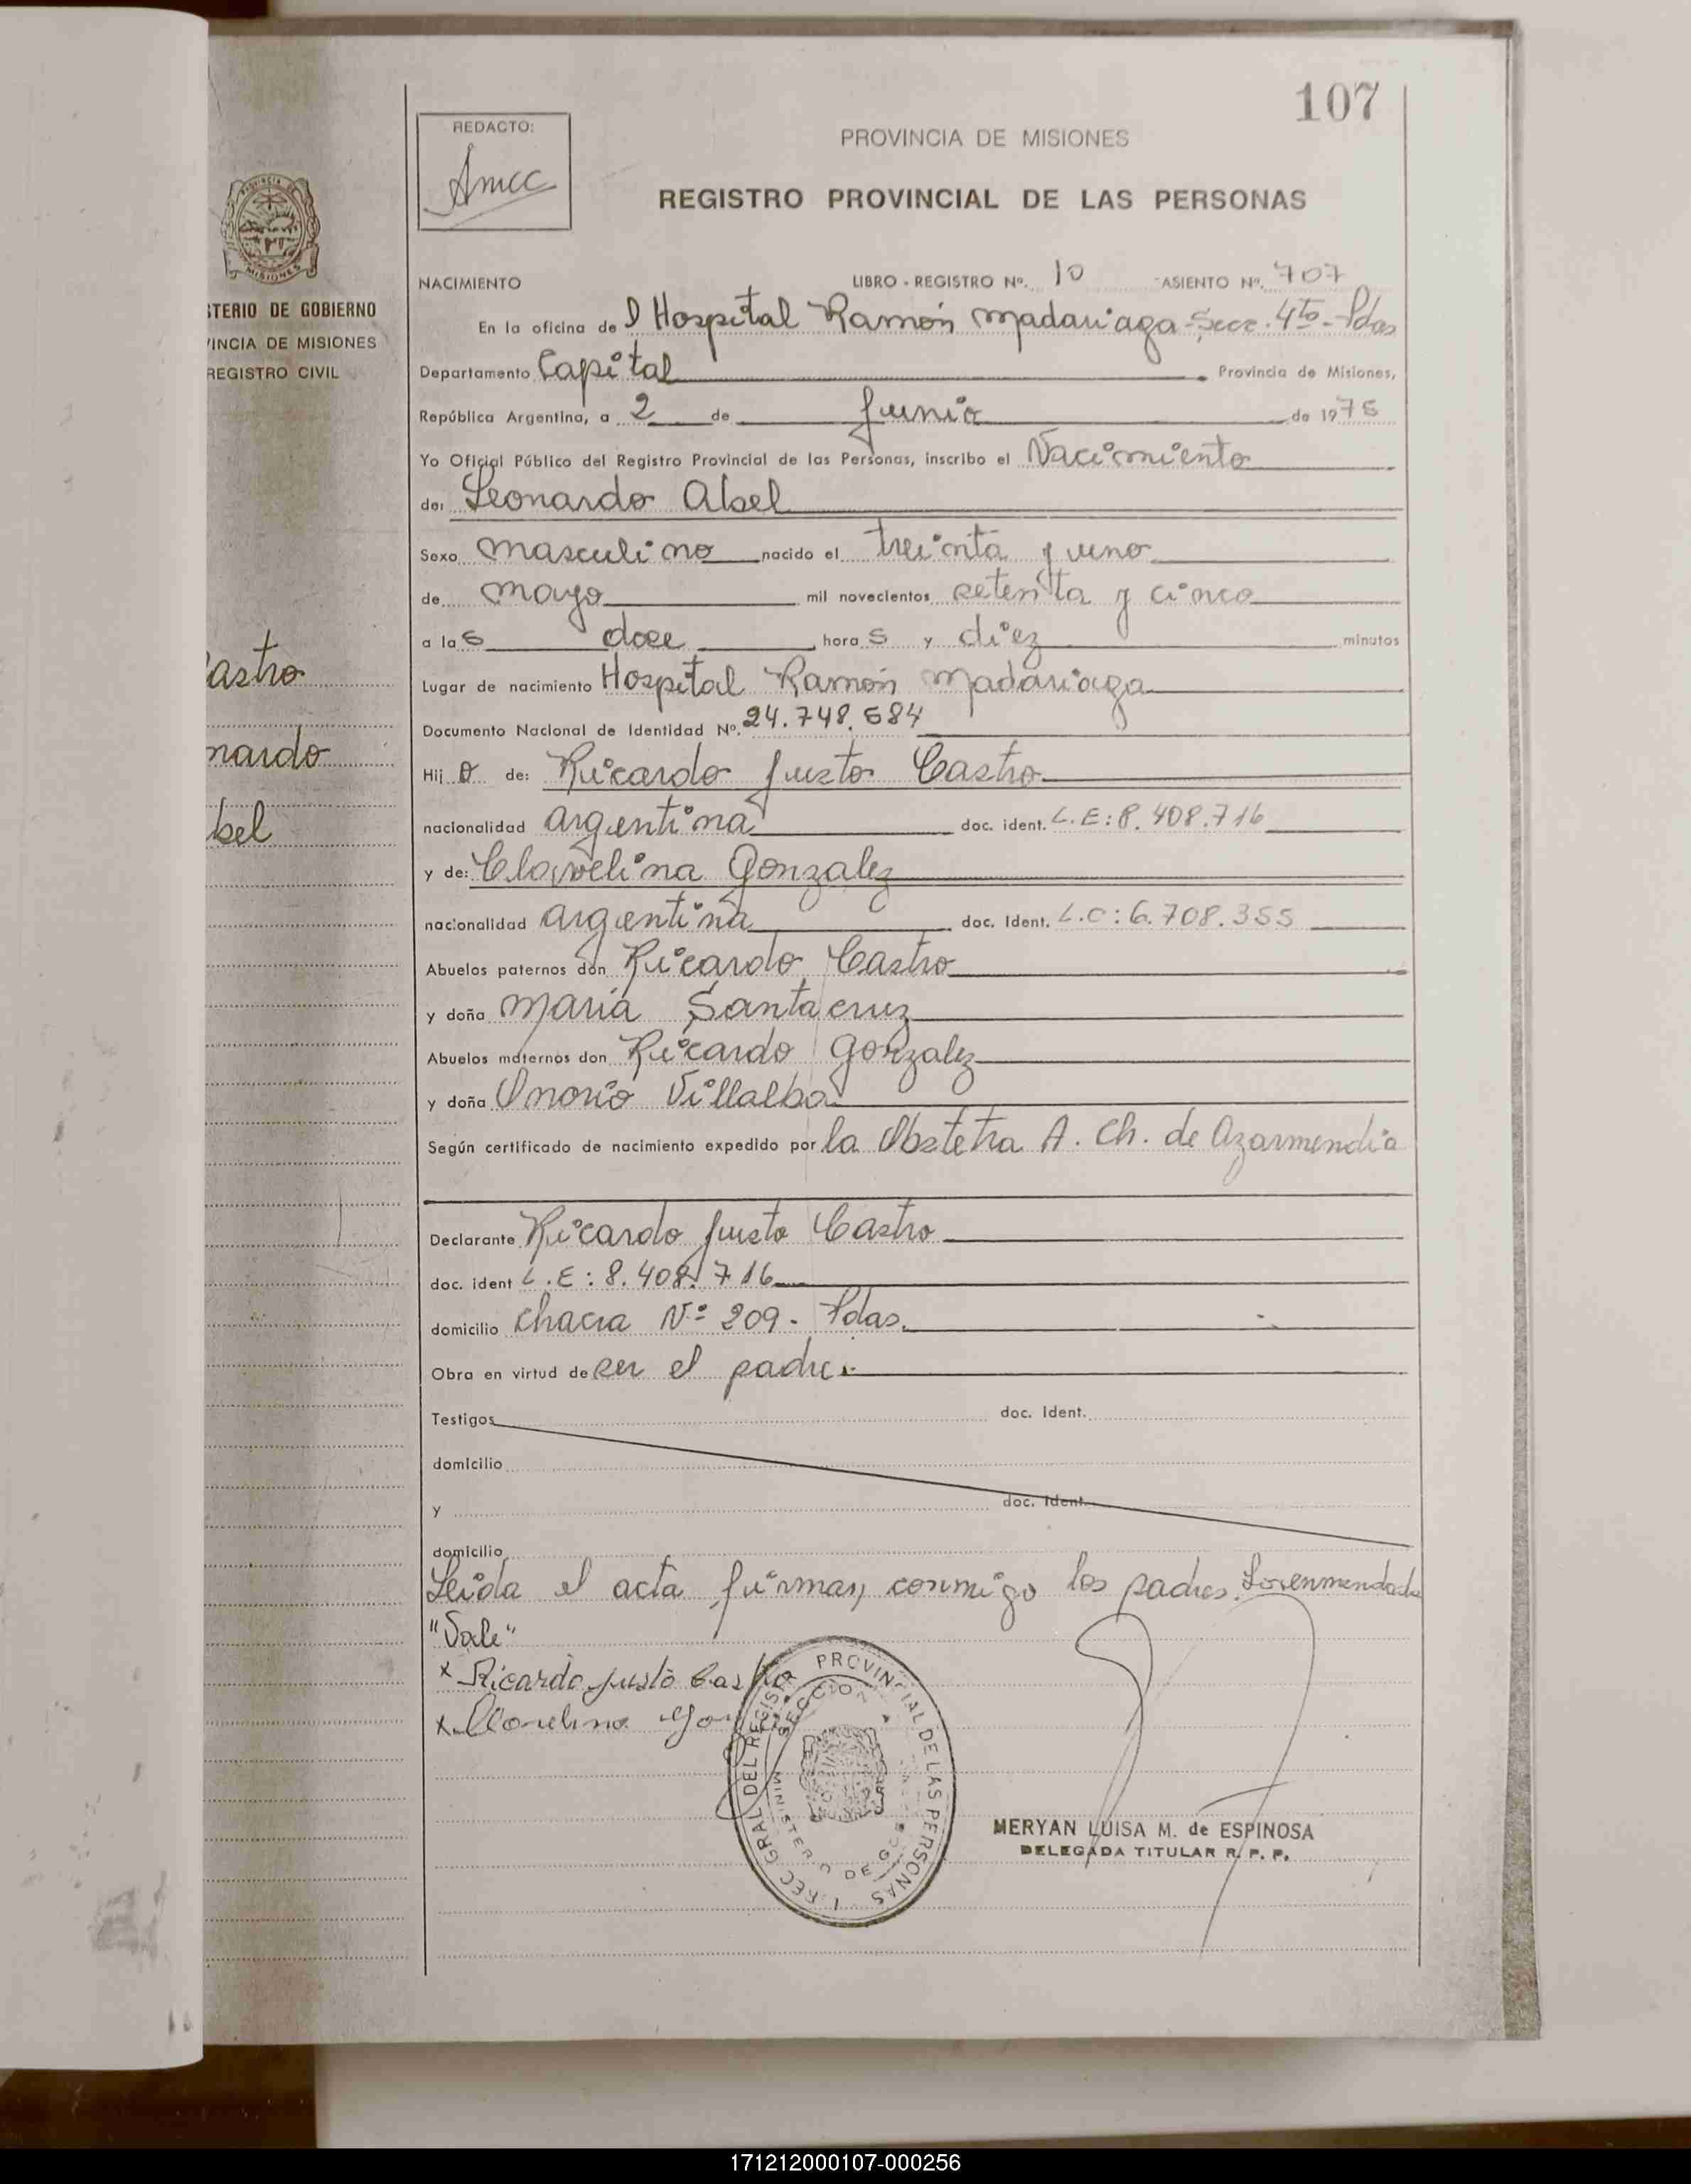 107
REDACTO:
Amcc
PROVINCIA DE MISIONES
REGISTRO PROVINCIAL DE LAS PERSONAS
MISIONES
STERIO DE GOBIERNO
VINCIA DE MISIONES
REGISTRO CIVIL
astro
nardo
bel
NACIMIENTO LIBRO - REGISTRO Nº. 10 ASIENTO Nº. 707
En la oficina de l Hospital Ramón Madariaga - Secc. 4ta - Pdas
Departamento Capital Provincia de Misiones,
República Argentina, a 2 de Junio de 1975
Yo Oficial Público del Registro Provincial de las Personas, inscribo el Nacimiento
de: Leonardo Abel
Sexo masculino nacido el treinta y uno
de mayo mil novecientos setenta y cinco
a las doce horas y diez minutos
Lugar de nacimiento Hospital Ramón Madariaga
Documento Nacional de Identidad Nº. 24.748.684
Hijo de: Ricardo Justo Castro
nacionalidad argentina doc. ident. L.E: 8.408.716
y de: Clavelina Gonzalez
nacionalidad argentina doc. Ident. L.C: 6.708.355
Abuelos paternos don Ricardo Castro
y doña Maria Santacruz
Abuelos maternos don Ricardo Gonzalez
y doña Villalba
Según certificado de nacimiento expedido por la Obstetra A. Ch. de Azarmendia
Declarante Ricardo Justo Castro
doc. ident L.E: 8.408.716
domicilio chacra Nº 209 - Pdas.
Obra en virtud de ser el padre.
Testigos doc. Ident.
domicilio
y doc. Ident.
domicilio
Leida el acta firman conmigo los padres. Sobreenmendado
"Vale"
x Ricardo Justo Castro
x Clavelina
REC. GRAL DEL REGISTR PROVINCIAL DE LAS PERSONAS
SECCION
MINISTERIO DE GOB
MERYAN LUISA M. de ESPINOSA
DELEGADA TITULAR R. P. P.
171212000107-000256